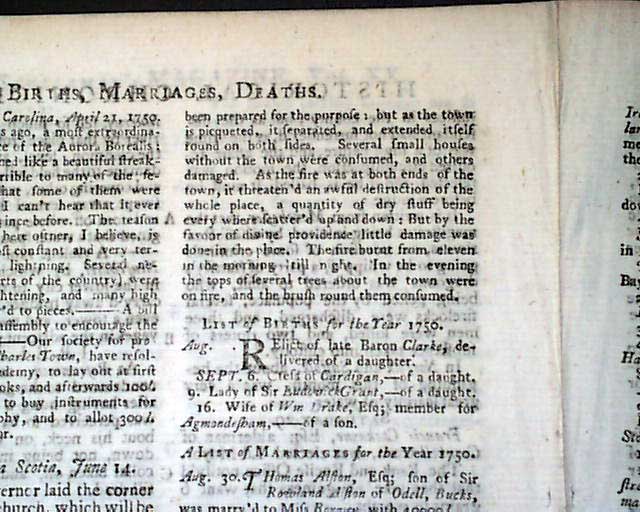 BIRTHS, MARRIAGES, DEATHS.
Carolina, April 21, 1750.
s ago, a most extraordina-
ce of the Aurora Borealis;
ed like a beautiful streak-
rrible to many of the fe-
hat some of them were
I can't hear that it ever
ince before. The reason
here oftner, I believe, is
st constant and very ter-
lightning. Several ne-
rts of the country) were
htening, and many high
'd to pieces.——A bill
assembly to encourage the
—Our society for pro
Charles Town, have resol-
demy, to lay out at first
oks, and afterwards 100l.
to buy instruments for
phy, and to allot 300l.
ar.
a Scotia, June 14.
erner laid the corner
church, which will be
been prepared for the purpose: but as the town
is picqueted, it separated, and extended itself
round on both sides. Several small houses
without the town were consumed, and others
damaged. As the fire was at both ends of the
town, it threaten'd an awful destruction of the
whole place, a quantity of dry stuff being
every where scatter'd up and down: But by the
favour of divine providence little damage was
done in the place. The fire burnt from eleven
in the morning till night. In the evening
the tops of several trees about the town were
on fire, and the brush round them consumed.
LIST of BIRTHS for the Year 1750.
Aug. RElict of late Baron Clarke, de-
livered of a daughter.
SEPT. 6. Ctess of Cardigan,—of a daught.
9. Lady of Sir Ludovick Grant,—of a daught.
16. Wife of Wm Drake, Esq; member for
Agmondesham,——of a son.
A LIST of MARRIAGES for the Year 1750.
Aug. 30. Thomas Alston, Esq; son of Sir
Rowland Alston of Odell, Bucks,
was marry'd to Miss with